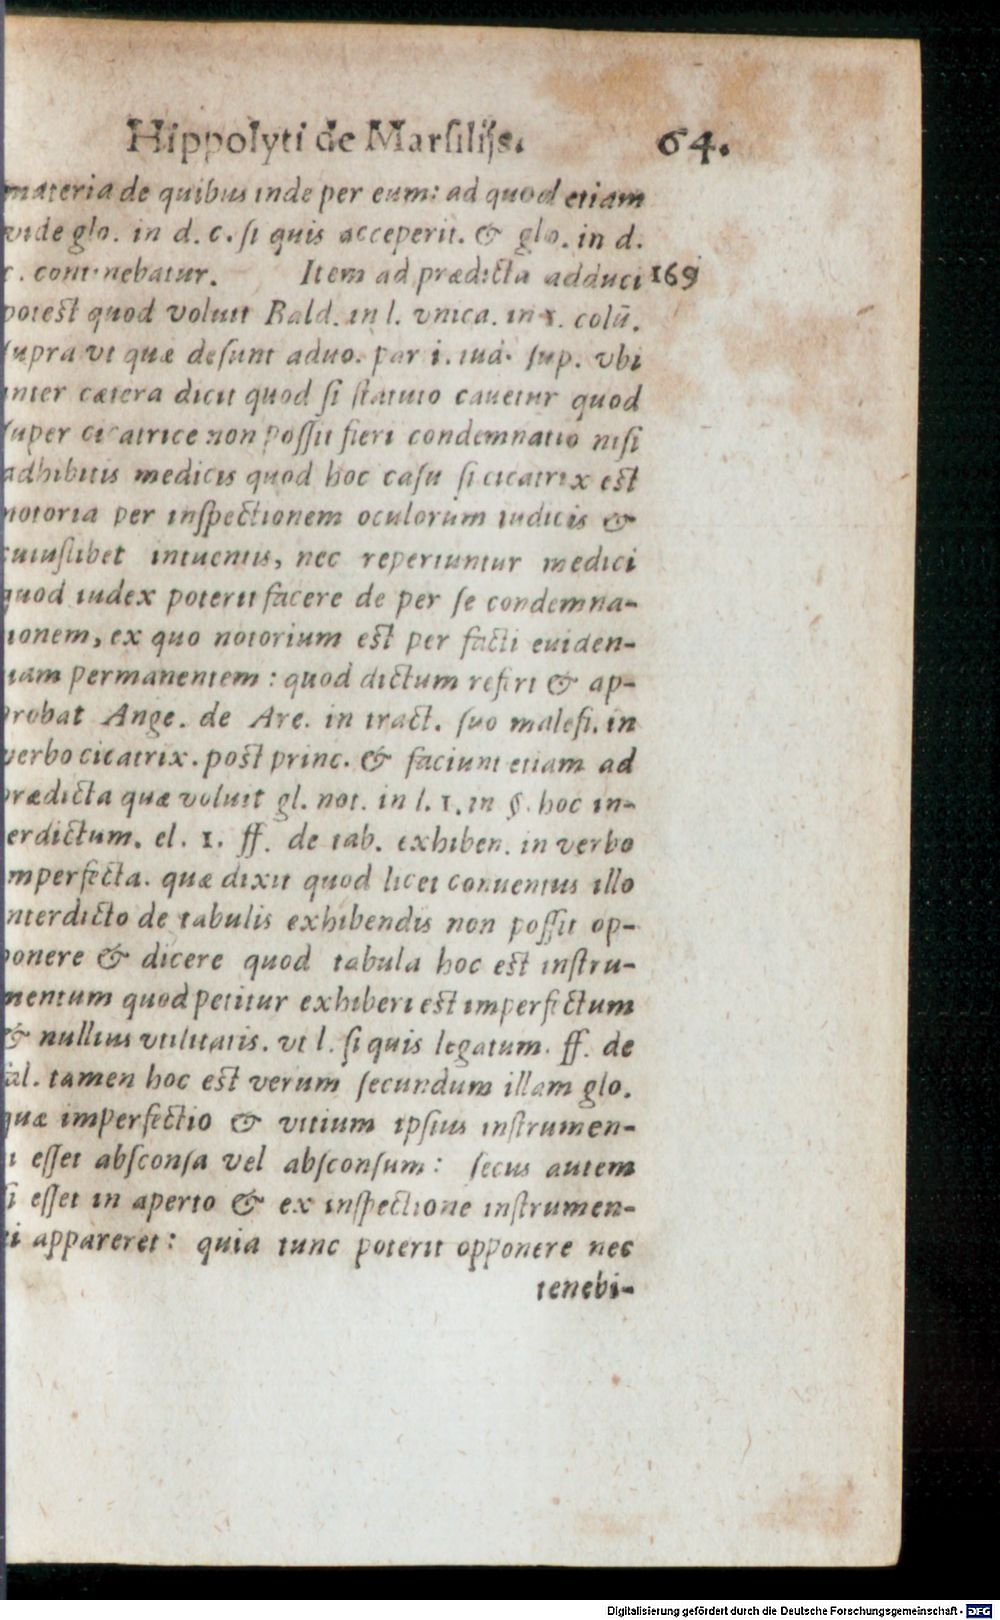 Hippolyti de Marsilijs. 64.
materia de quibus inde per eum: ad quod etiam
vide glo. in d. c. si quis acceperit. & glo. in d.
c. continebatur. Item ad prædicta adduci 169
potest quod voluit Bald. in l. vnica. in 1. colū.
supra vt quæ desunt aduo. par i. iud. sup. vbi
inter cætera dicit quod si statuto cauetur quod
super cicatrice non possit fieri condemnatio nisi
adhibitis medicis quod hoc casu si cicatrix est
notoria per inspectionem oculorum iudicis &
cuiuslibet intuentis, nec reperiuntur medici
quod iudex poterit facere de per se condemna-
tionem, ex quo notorium est per facti euiden-
tiam permanentem: quod dictum refert & ap-
probat Ange. de Are. in tract. suo malefi. in
verbo cicatrix. post princ. & faciunt etiam ad
prædicta quæ voluit gl. not. in l. 1. in §. hoc in-
erdictum. el. 1. ff. de tab. exhiben. in verbo
imperfecta. quæ dixit quod licet conuentus illo
interdicto de tabulis exhibendis non possit op-
ponere & dicere quod tabula hoc est instru-
mentum quod petitur exhiberi est imperfectum
& nullius vtilitatis. vt l. si quis legatum. ff. de
fal. tamen hoc est verum secundum illam glo.
quæ imperfectio & vitium ipsius instrumen-
ti esset absconsa vel absconsum: secus autem
si esset in aperto & ex inspectione instrumen-
ti appareret: quia tunc poterit opponere nec
tenebi-
Digitalisierung gefördert durch die Deutsche Forschungsgemeinschaft - DFG